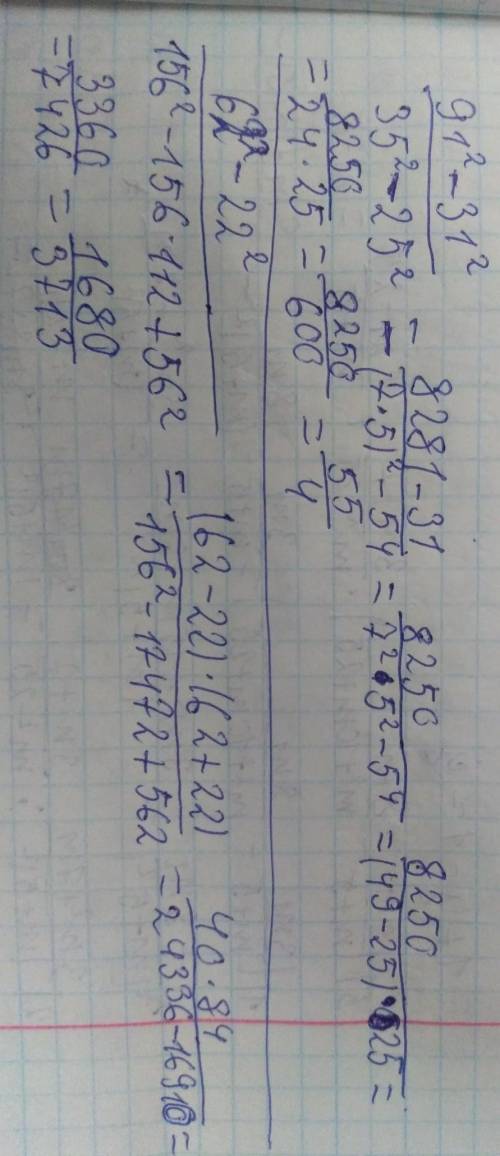 91² - 31² / 35² - 25² = 8281 - 31 / (7·5)² - 5⁴ = 8250 / 7²·5² - 5⁴ = 8250 / (49 - 25)·25 =
= 8250 / 24·25 = 8250 / 600 = 55 / 4
62² - 22² / 156² - 156·112 + 56² = (62 - 22)·(62 + 22) / 156² - 17472 + 562 = 40·84 / 24336 - 16910 =
= 3360 / 7426 = 1680 / 3713